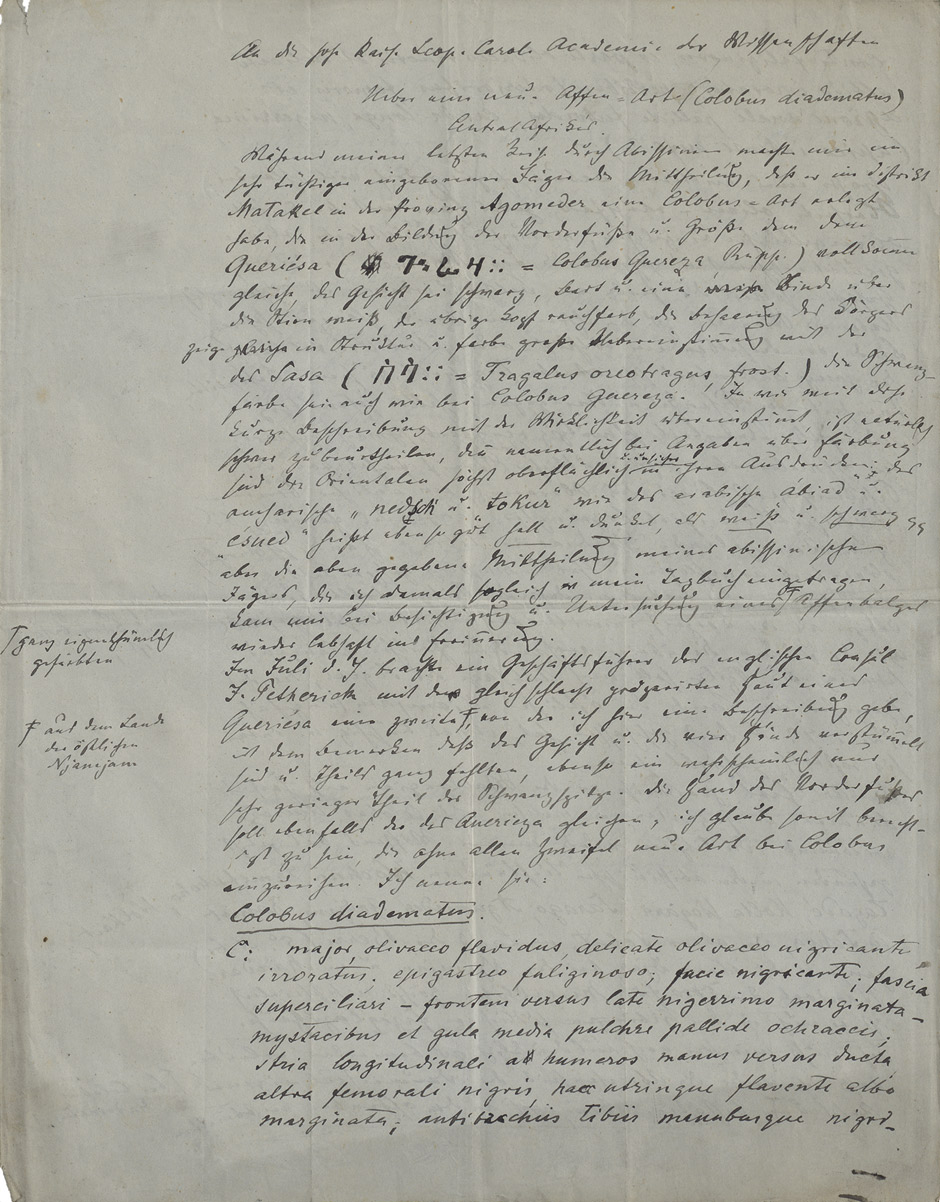 An die hohe Kais. Leop. Carol. Academie der Wissenschaften
Ueber eine neue Affen-Art (Colobus diadematus)
Central Afrikas.
Während meiner letzten Reise durch Abissinien machte mir ein
sehr tüchtiger eingeborener Jäger die Mittheilung, daß er im Distrikt
Matakkel in der Provinz Agomeder eine Colobus-Art erlegt
habe, die in der Bildung der Vorderfüße u. Größe dem dem
Queriésa ( = Colobus Guereza, Rüpp.) vollkomm
gleiche, das Gesicht sei schwarz, Bart u. eine Binde über
die Stirn weiß, der übrige Kopf rauchfarb, die Behaarung des Körpers
zeige gleiche in Struktur u. Farbe große Uebereinstimmung mit der
des Sasa ( = Tragalus oreotragus, frost.) die Schwanz-
farbe sei auch wie bei Colobus Guereza. In wie weit diese
kurze Beschreibung mit der Wirklichkeit übereinstimmt, ist natürlich
schwer zu beurtheilen, denn namentlich bei Angaben über Färbung
sind die Orientalen höchst oberflächlich u. unsicher in ihren Ausdrücken; das
amharische „nedsch u. tokur" wie das arabische Abiad u.
"ésued" heißt ebenso gut hell u. dunkel, als weiß u. schwarz
aber die oben gegebene Mittheilung meines abissinischen
Jägers, die ich damals sogleich in mein Tagbuch eingetragen,
kam mir bei Besichtigung u. Untersuchung eines Affenbalges
wieder lebhaft ins Erinnerung.
ganz eigenthümlich
gefärbten
Im Juli d. J. brachte ein Geschäftsführer des englischen Consul
J. Petherick mit der gleich schlecht präparirten Haut eines
Queriésa eine zweite, von der ich hier eine Beschreibung gebe,
† aus dem Lande
der östlichen
Njamjam
mit dem Bemerken daß das Gesicht u. die vier Hände verstümmelt
sind u. theils ganz fehlten, ebenso ein wahrscheinlich nur
sehr geringer Theil der Schwanzspitze. Die Hand des Vorderfußes
soll ebenfalls der des Querieza gleichen, ich glaube somit berecht-
igt zu sein, die ohne allen Zweifel neue Art bei Colobus
einzureihen. Ich nenne sie:
Colobus diadematus.
C: major, olivaceo flavidus, delicate olivaceo nigricante
irroratus. epigastreo fuliginoso; facie nigricante; fascia
superciliari – frontem versus late nigerrimo marginata –
mystacibus et gula media pulchre pallide ochraceis,
stria longitudinali ad humeros manus versus ducta,
altra femorali nigris, hac utrinque flavente albo
marginata; antibrachiis tibiis manubusque nigri-